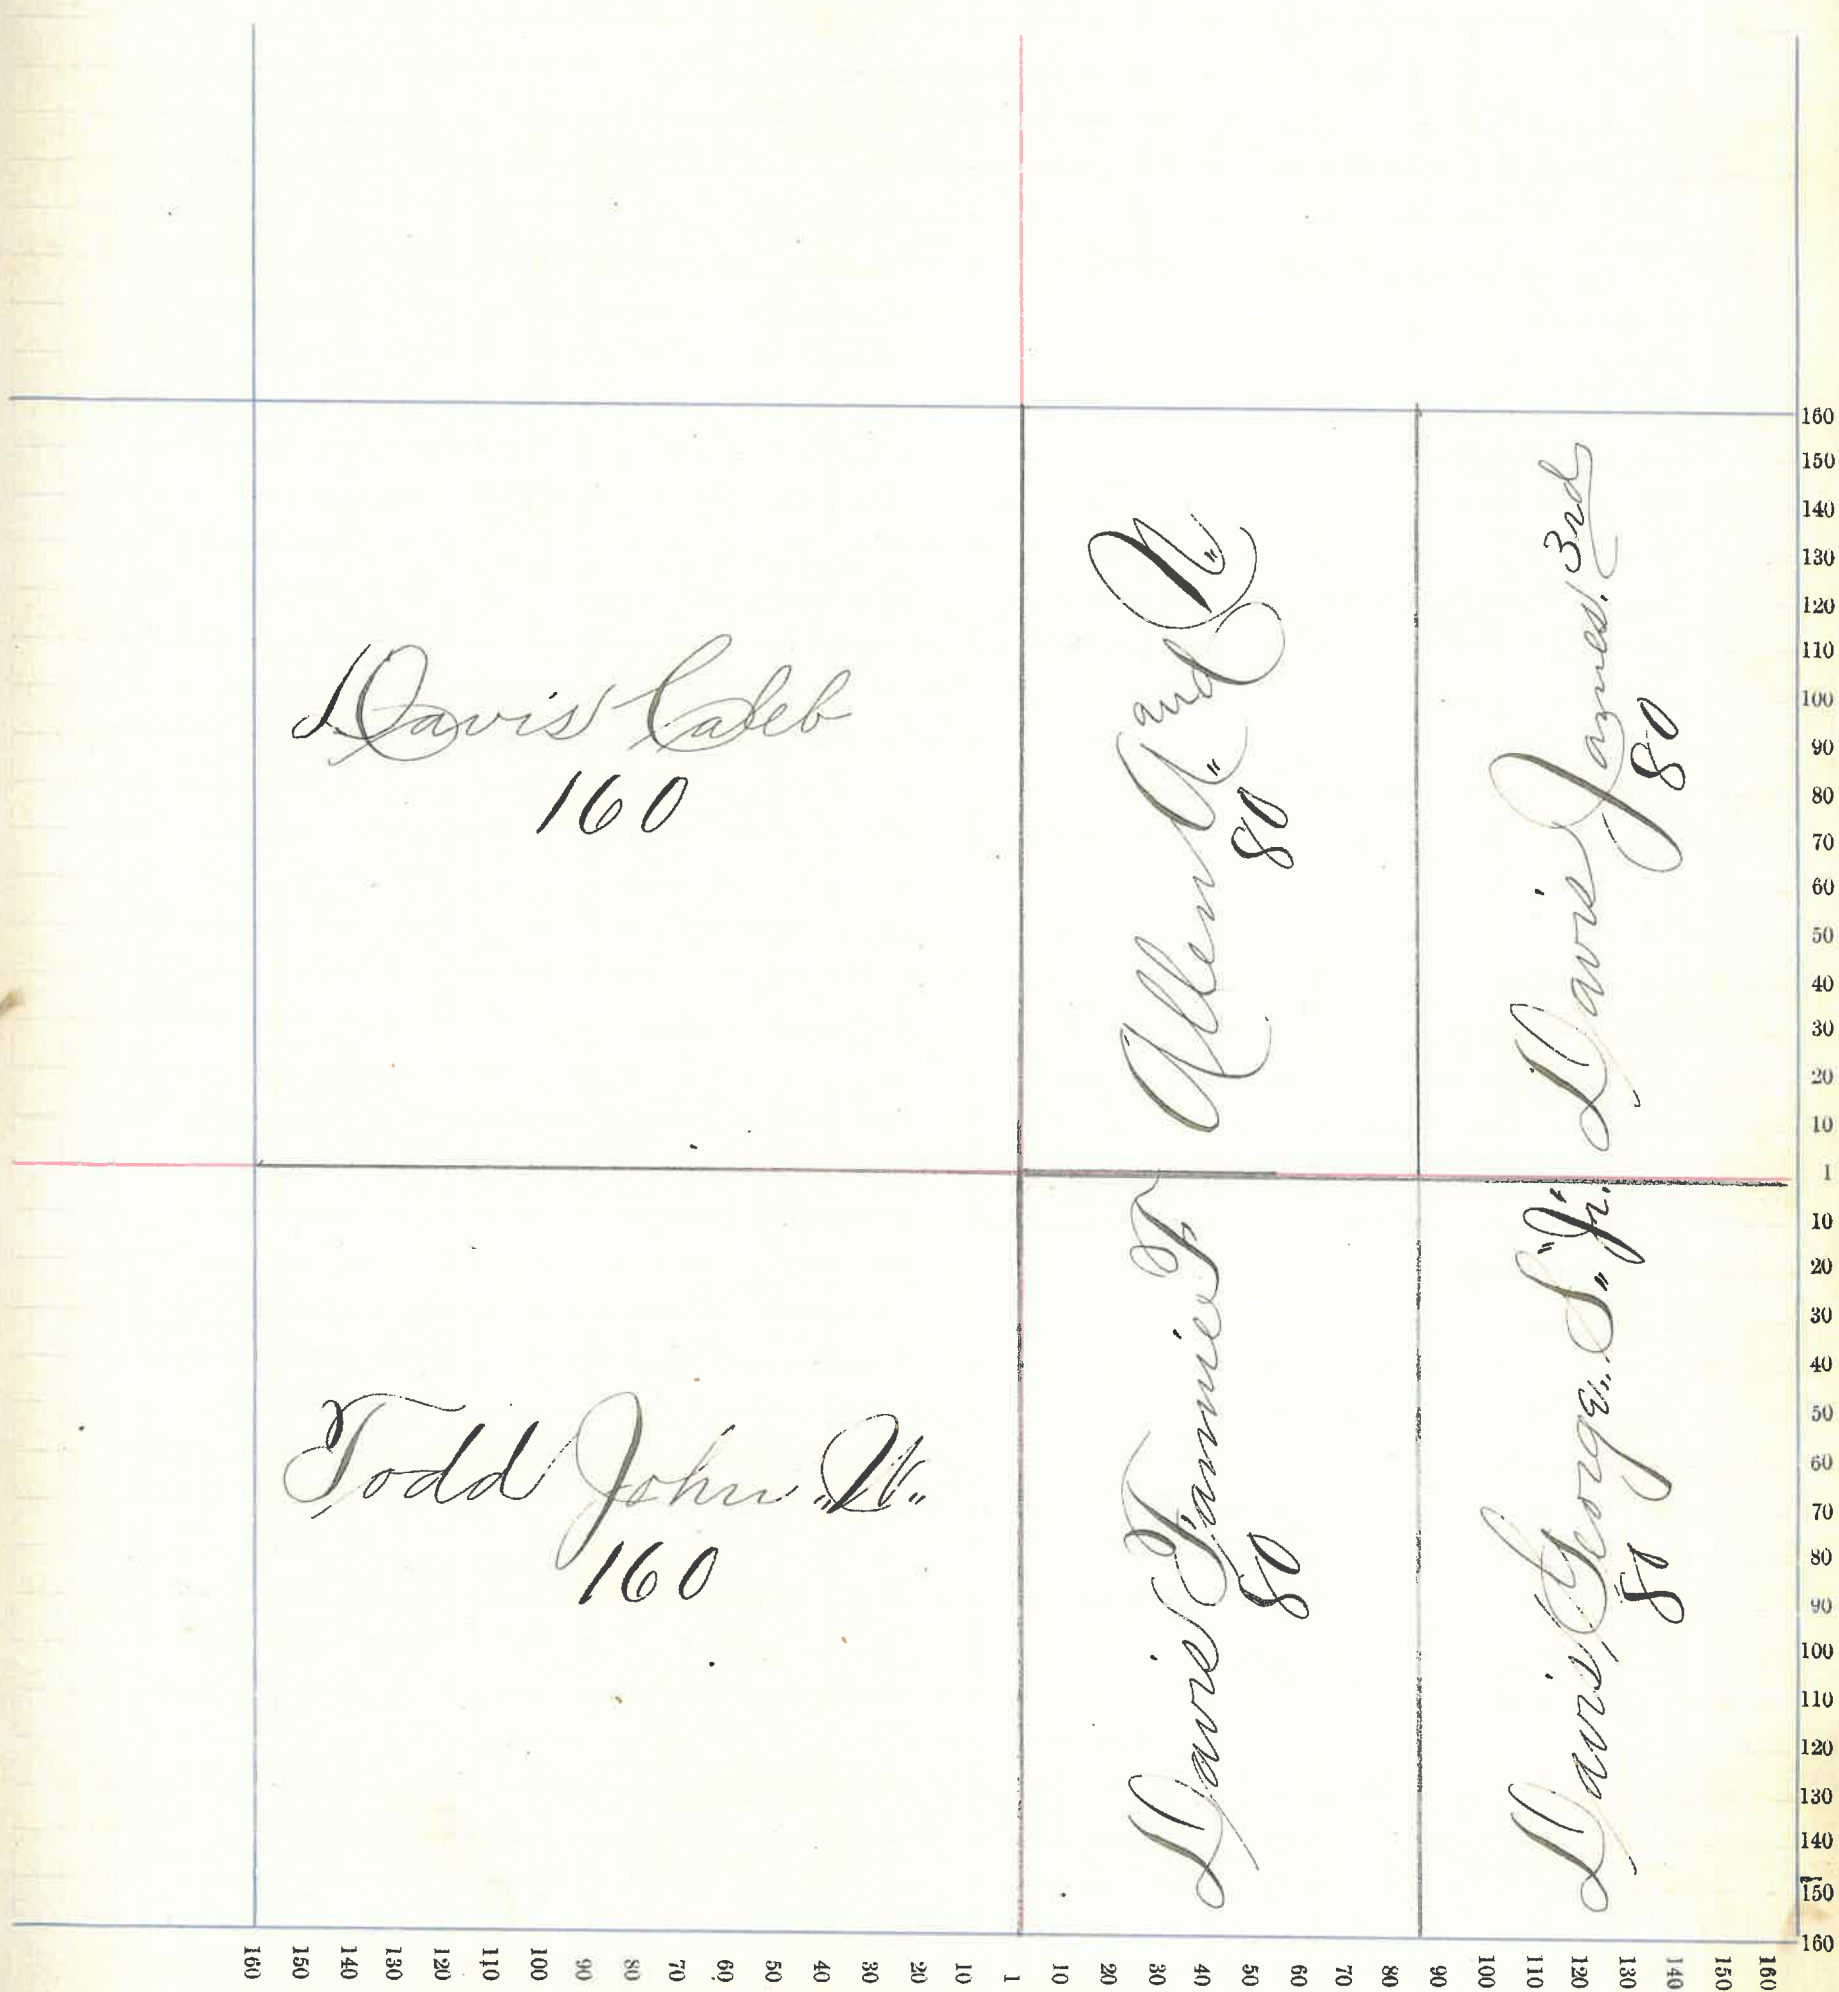 Davis Caleb
160
Allen A. and N.
80
Davis James. 3rd
80
Todd John W.
160
Davis Fannie F
80
Davis, George S. Jr.
80
160
150
140
130
120
110
100
90
80
70
60
50
40
30
20
10
1
10
20
30
40
50
60
70
80
90
100
110
120
130
140
150
160
160 150 140 130 120 110 100 90 80 70 60 50 40 30 20 10 1 10 20 30 40 50 60 70 80 90 100 110 120 130 140 150 160